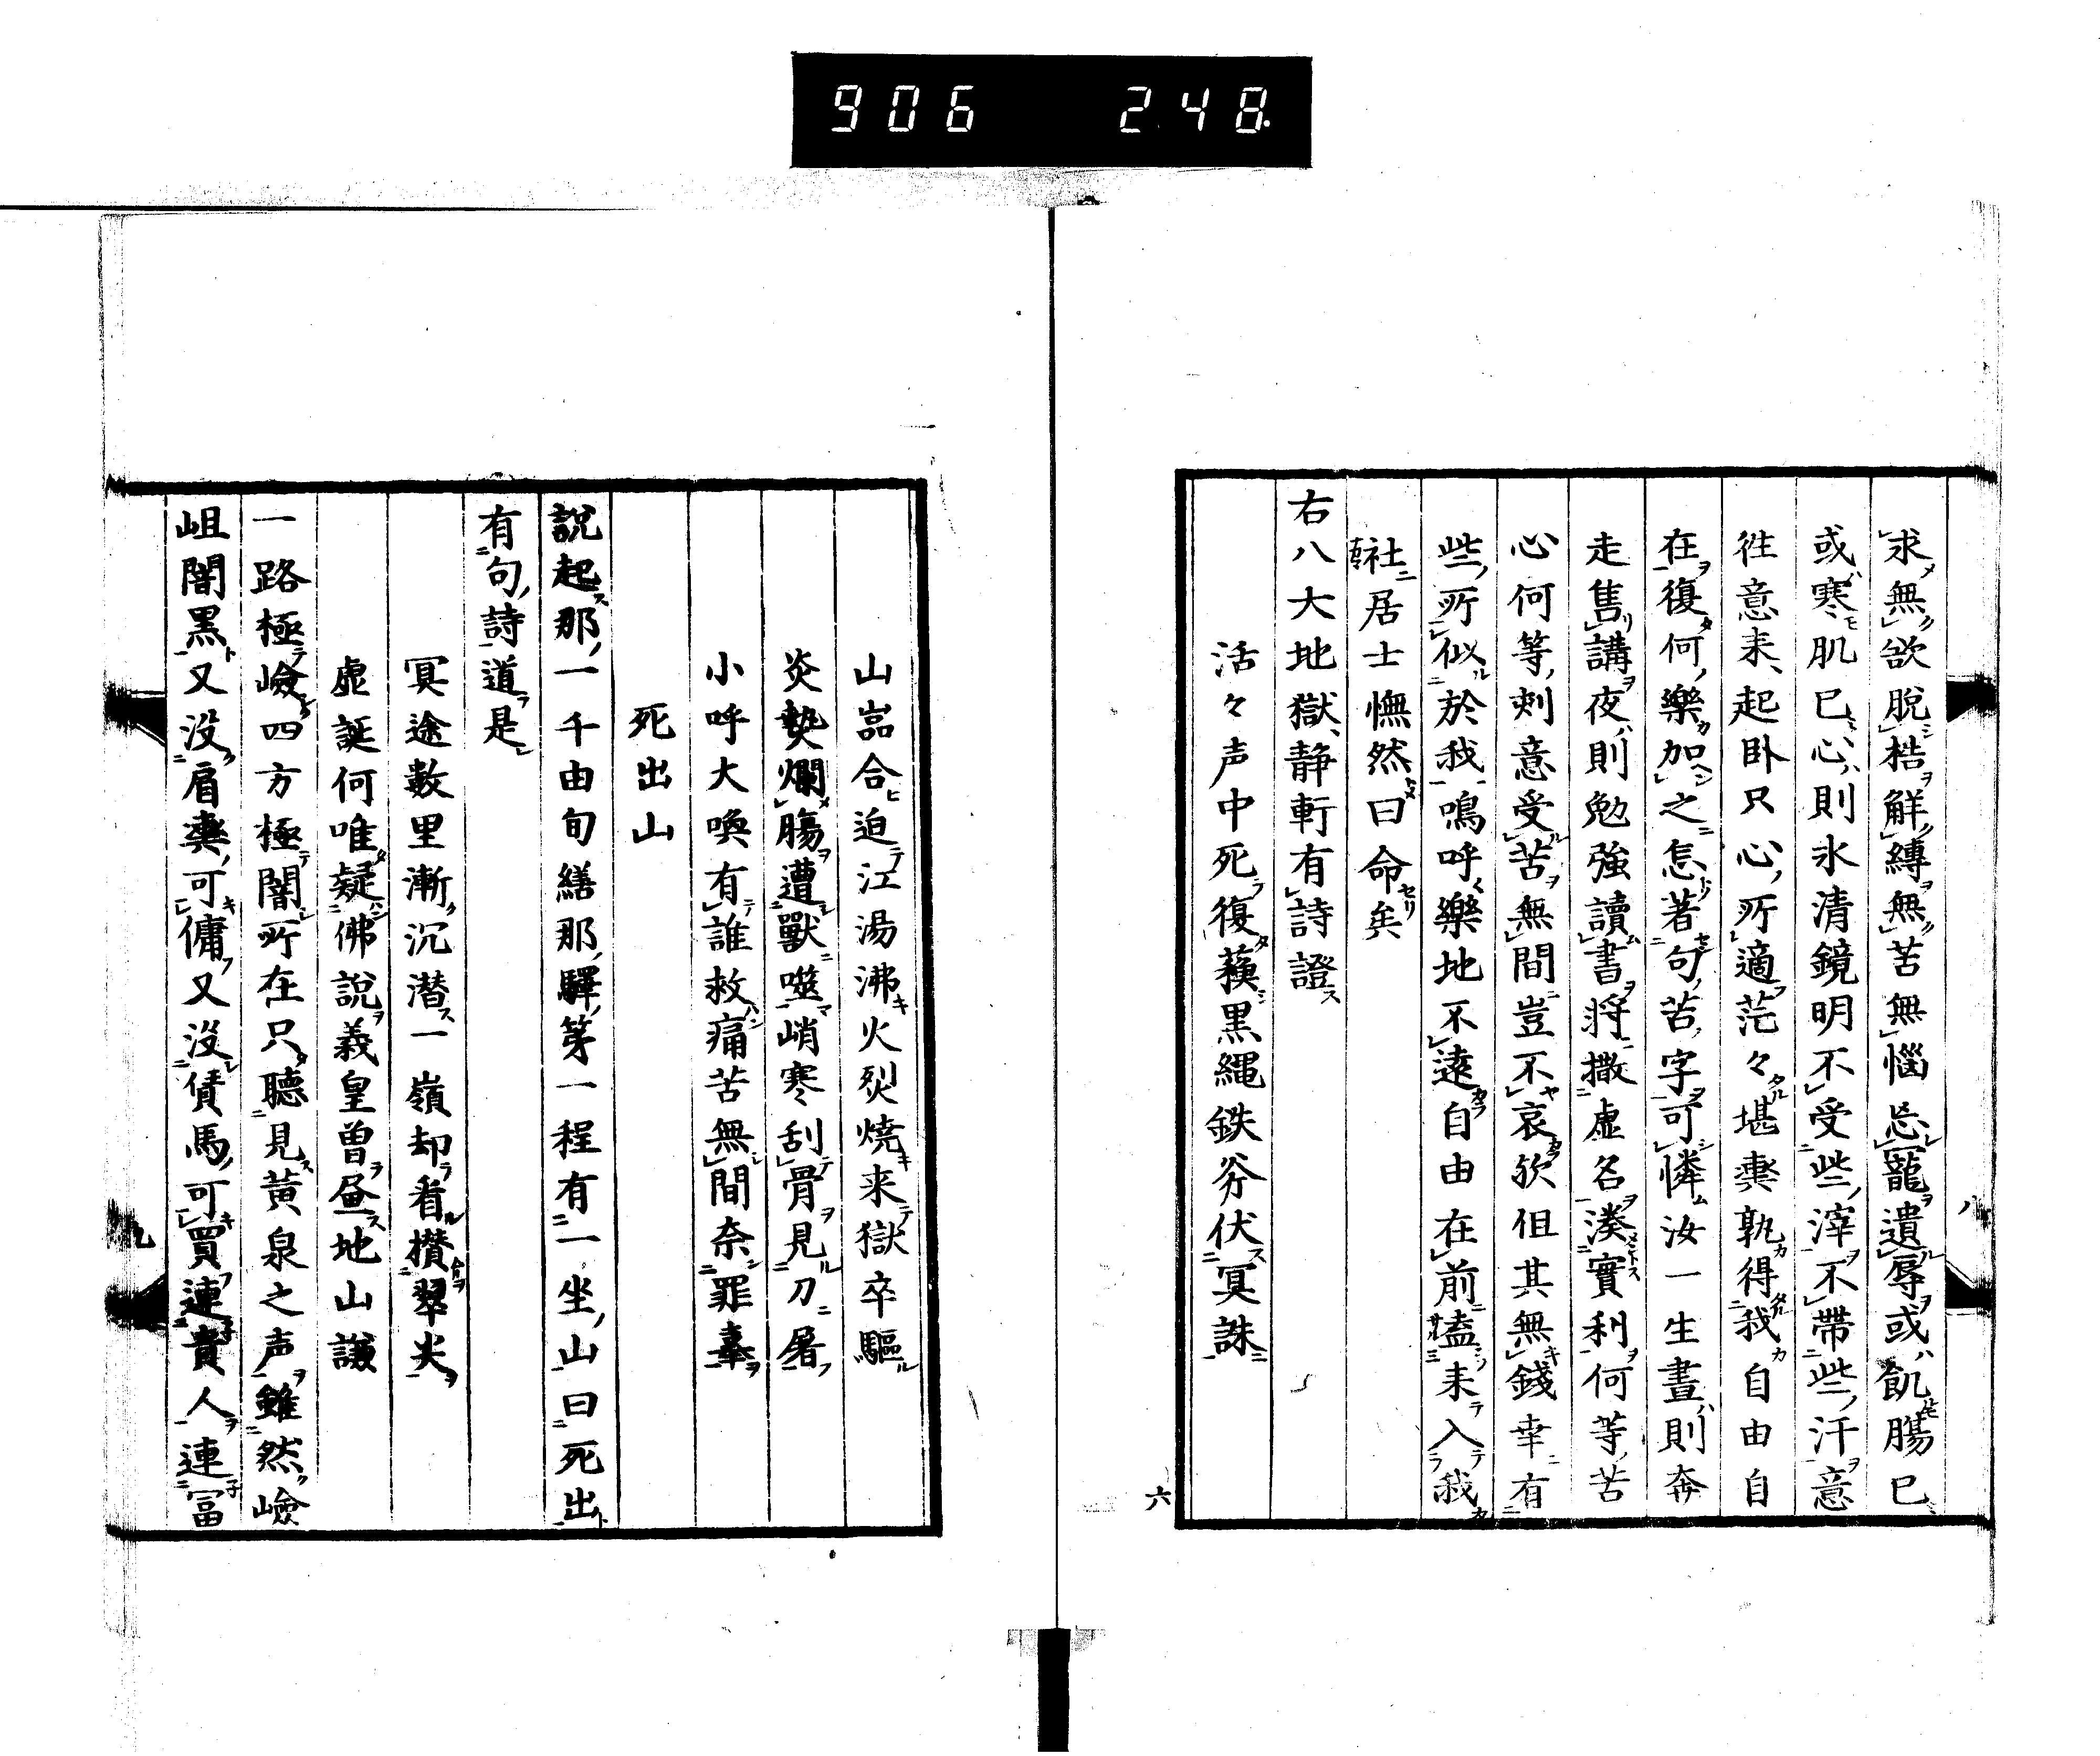 906 248.
求無欲脫梏解縛無苦無惱忘寵遺辱或飢腸已
或寒肌已心則氷清鏡明不受些滓不帶些汗意
徃意来起卧只心所適茫々堪輿孰得我自由自
在復何樂加之怎著句苦字可憐汝一生晝則奔
走售講夜則勉強讀書將撒虛名湊實利何等苦
心何等刺意受苦無間豈不哀欤但其無錢幸有
些所似於我嗚呼樂地不遠自由在前盍来入我
社居士憮然曰命矣
右八大地獄静軒有詩證
活々声中死復蘓黒縄鉄斧伏冥誅
六
八
山嵓合迫江湯沸火烈焼来獄卒驅
炎𤍠爛膓遭獸噬峭寒刮骨見刀屠
小呼大喚有誰救痛苦無間奈罪辜
死出山
說起那一千由旬繕那驛第一程有一坐山曰死出
有句詩道是
冥途數里漸沉潜一嶺却看攅翠尖
虛誕何唯疑佛說義皇曽昼地山謙
一路極嶮四方極闇所在只聴見黄泉之声雖然嶮
岨闇黒又没肩輿可傭又没債馬可買連貴人連冨
九